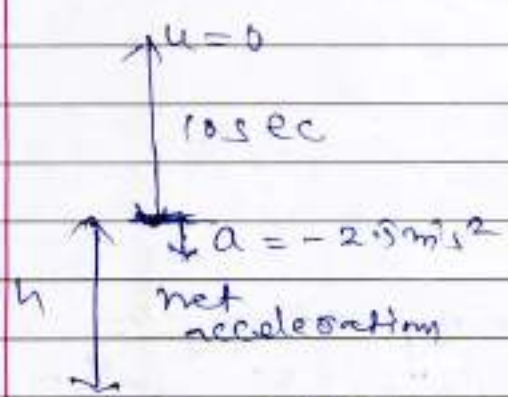 u = 0
10 sec
a = - 2.5 m/s²
h
net
acceleration